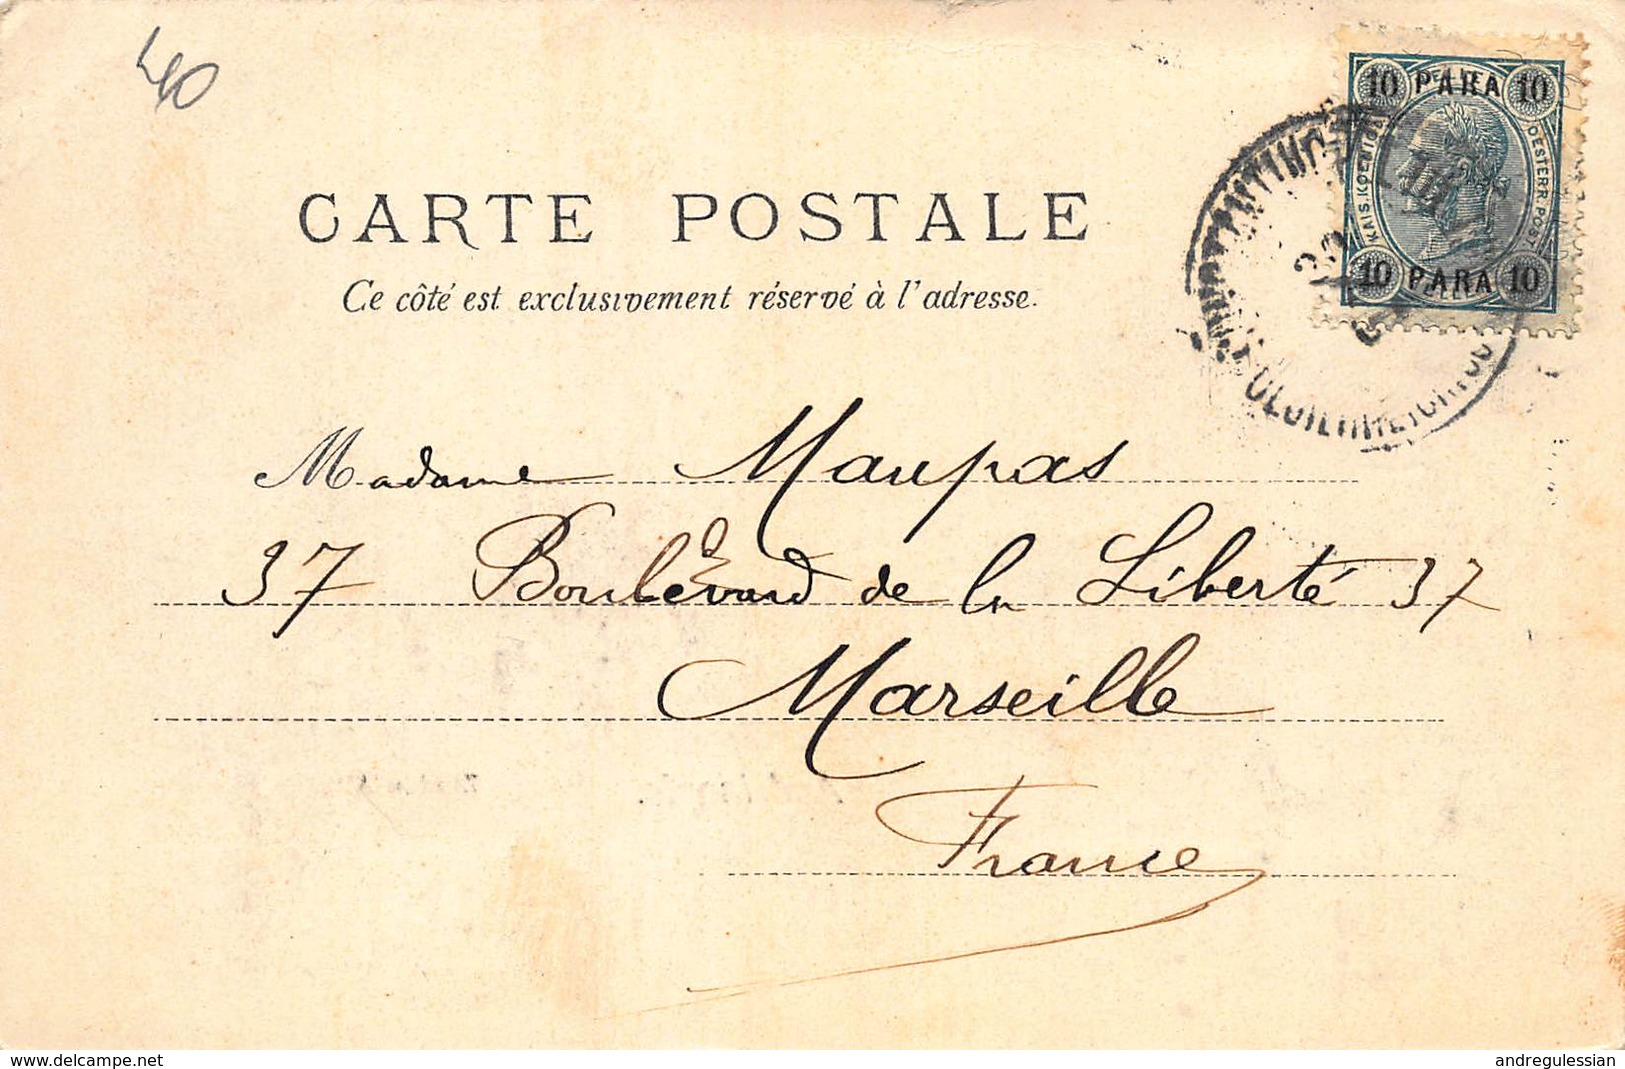 40
10 PARA 10
KAIS. KOENIGL.
OESTERR. POST.
10 PARA 10
CARTE POSTALE
Ce côté est exclusivement réservé à l'adresse.
Madame Maupas
37 Boulevard de la Liberté 37
Marseille
France
delcampe.net
andregulessian